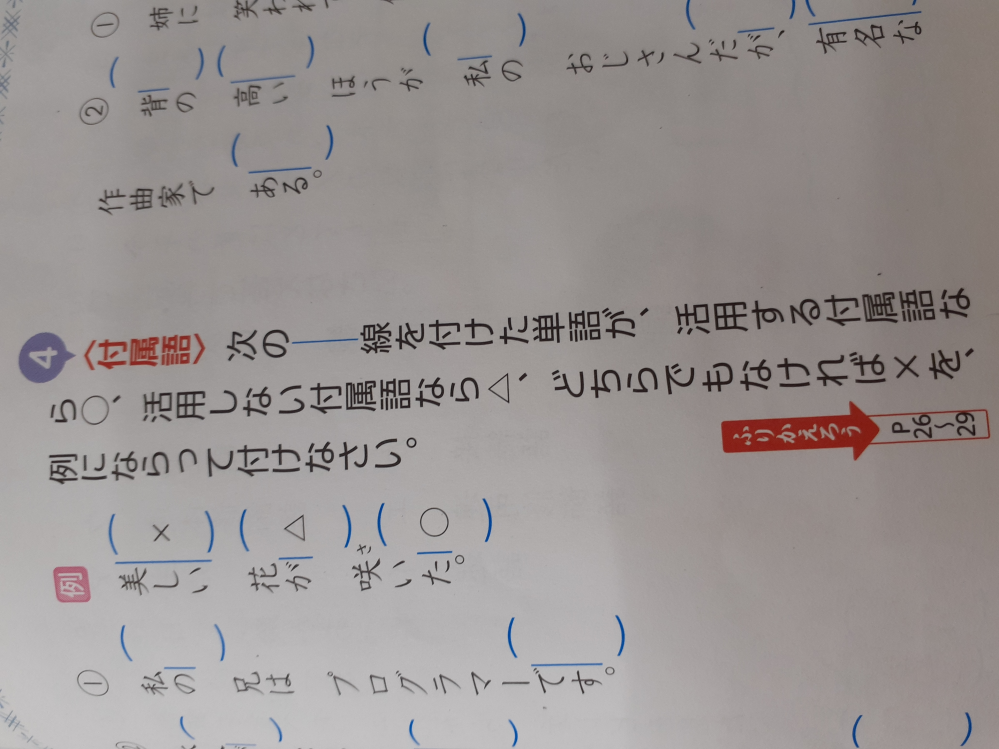 ① 姉に 笑われ
② 背の 高い ほうが 私の おじさんだが、 有名な
作曲家で ある。
4 〈付属語〉 次の――線を付けた単語が、活用する付属語な
ら○、活用しない付属語なら△、どちらでもなければ×を、
例にならって付けなさい。
ふりかえろう P26~29
例 美しい(×) 花が(△) 咲いた(○)。
さ
① 私の 兄は プログラマーです。